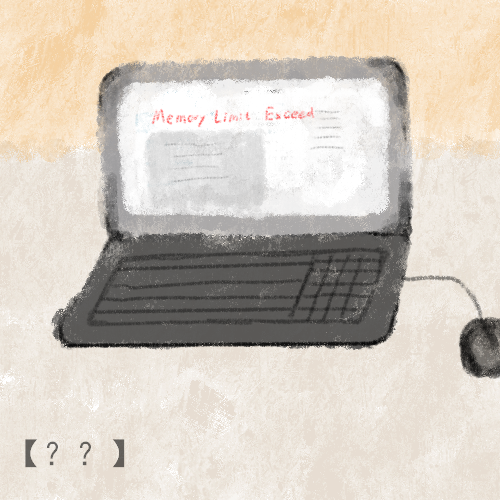 Memory Limit Exceed
【？？】